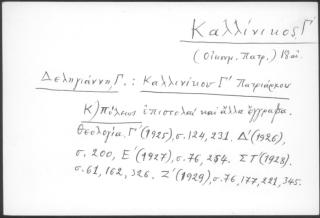 Καλλίνικος Γ΄
(Οἰκουμ. Πατρ.) 18 αἰ.
Δεληγιάννη, Γ. : Καλλινίκου Γ΄ Πατριάρχου
Κ)πόλεως ἐπιστολαὶ καὶ ἄλλα ἔγγραφα.
Θεολογία, Γ΄(1925), σ. 124, 231. Δ΄(1926),
σ. 200, Ε΄(1927), σ. 76, 254. ΣΤ΄(1928).
σ. 61, 162, 326. Ζ΄(1929), σ. 76, 177, 221, 345.